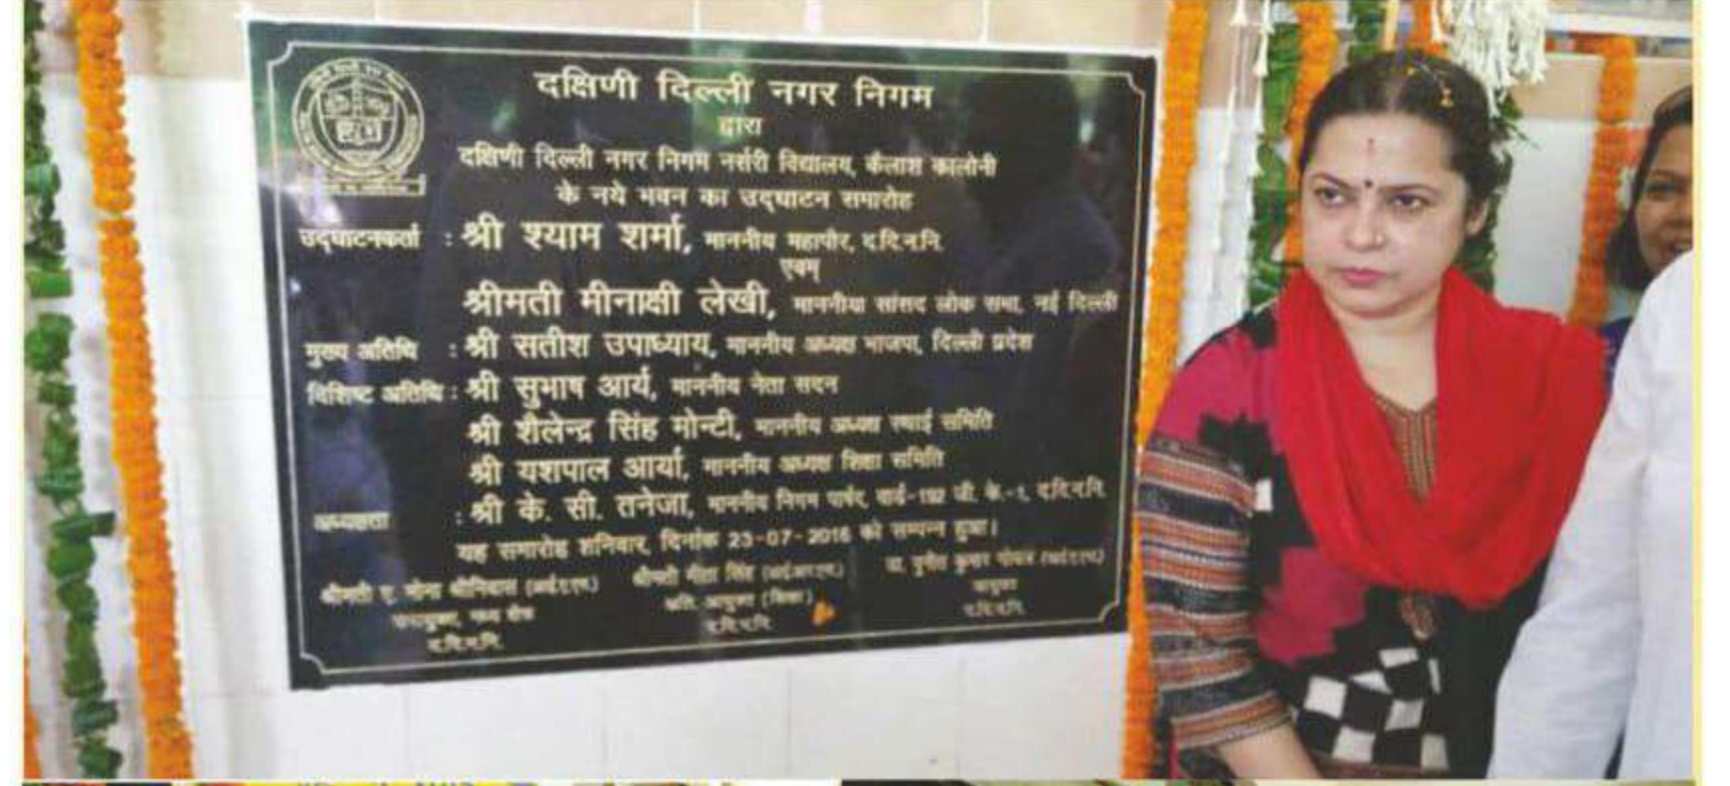 दक्षिणी दिल्ली नगर निगम
द्वारा
दक्षिणी दिल्ली नगर निगम नर्सरी विद्यालय, कैलाश कालोनी
के नये भवन का उद्घाटन समारोह
उद्घाटनकर्ता : श्री श्याम शर्मा, माननीय महापौर, द.दि.न.नि.
एवम्
श्रीमती मीनाक्षी लेखी, माननीया सांसद लोक सभा, नई दिल्ली
मुख्य अतिथि : श्री सतीश उपाध्याय, माननीय अध्यक्ष भाजपा, दिल्ली प्रदेश
विशिष्ट अतिथि : श्री सुभाष आर्य, माननीय नेता सदन
श्री शैलेन्द्र सिंह मोन्टी, माननीय अध्यक्ष स्थाई समिति
श्री यशपाल आर्या, माननीय अध्यक्ष शिक्षा समिति
अध्यक्षता : श्री के. सी. तनेजा, माननीय निगम पार्षद, वार्ड-192 जी. के.-1, द.दि.न.नि.
यह समारोह शनिवार, दिनांक 23-07-2016 को सम्पन्न हुआ।
श्रीमती ए. मोना श्रीनिवास (आई.ए.एस.) श्रीमती मीता सिंह (आई.आर.एस.) डा. पुनीत कुमार गोयल (आई.ए.एस.)
उपायुक्त, मध्य क्षेत्र अति. आयुक्त (शिक्षा) आयुक्त
द.दि.न.नि. द.दि.न.नि. द.दि.न.नि.